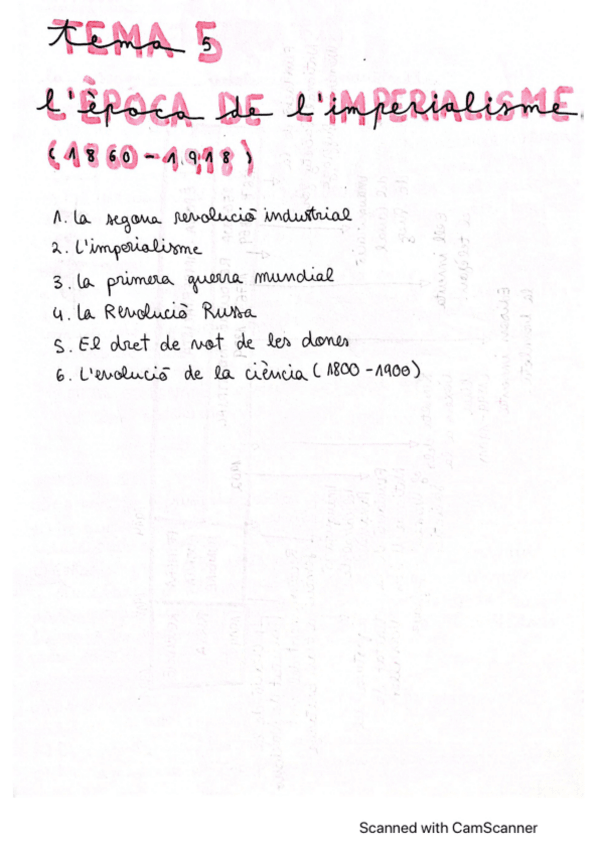 TEMA 5
L'ÈPOCA DE L'IMPERIALISME
(1860-1918)
1. La segona revolució industrial
2. L'imperialisme
3. La primera guerra mundial
4. La Revolució Russa
5. El dret de vot de les dones
6. L'evolució de la ciència (1800-1900)
Scanned with CamScanner